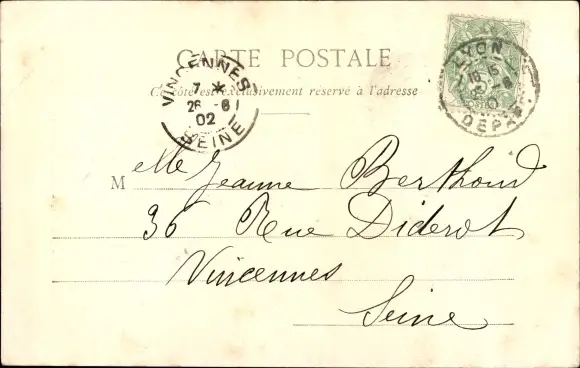 CARTE POSTALE
Ce côté est exclusivement réservé à l'adresse
VINCENNES
7 *
26 -6
02
SEINE
LYON
DEPART
M elle Jeanne Berthoud
36 Rue Diderot
Vincennes
Seine